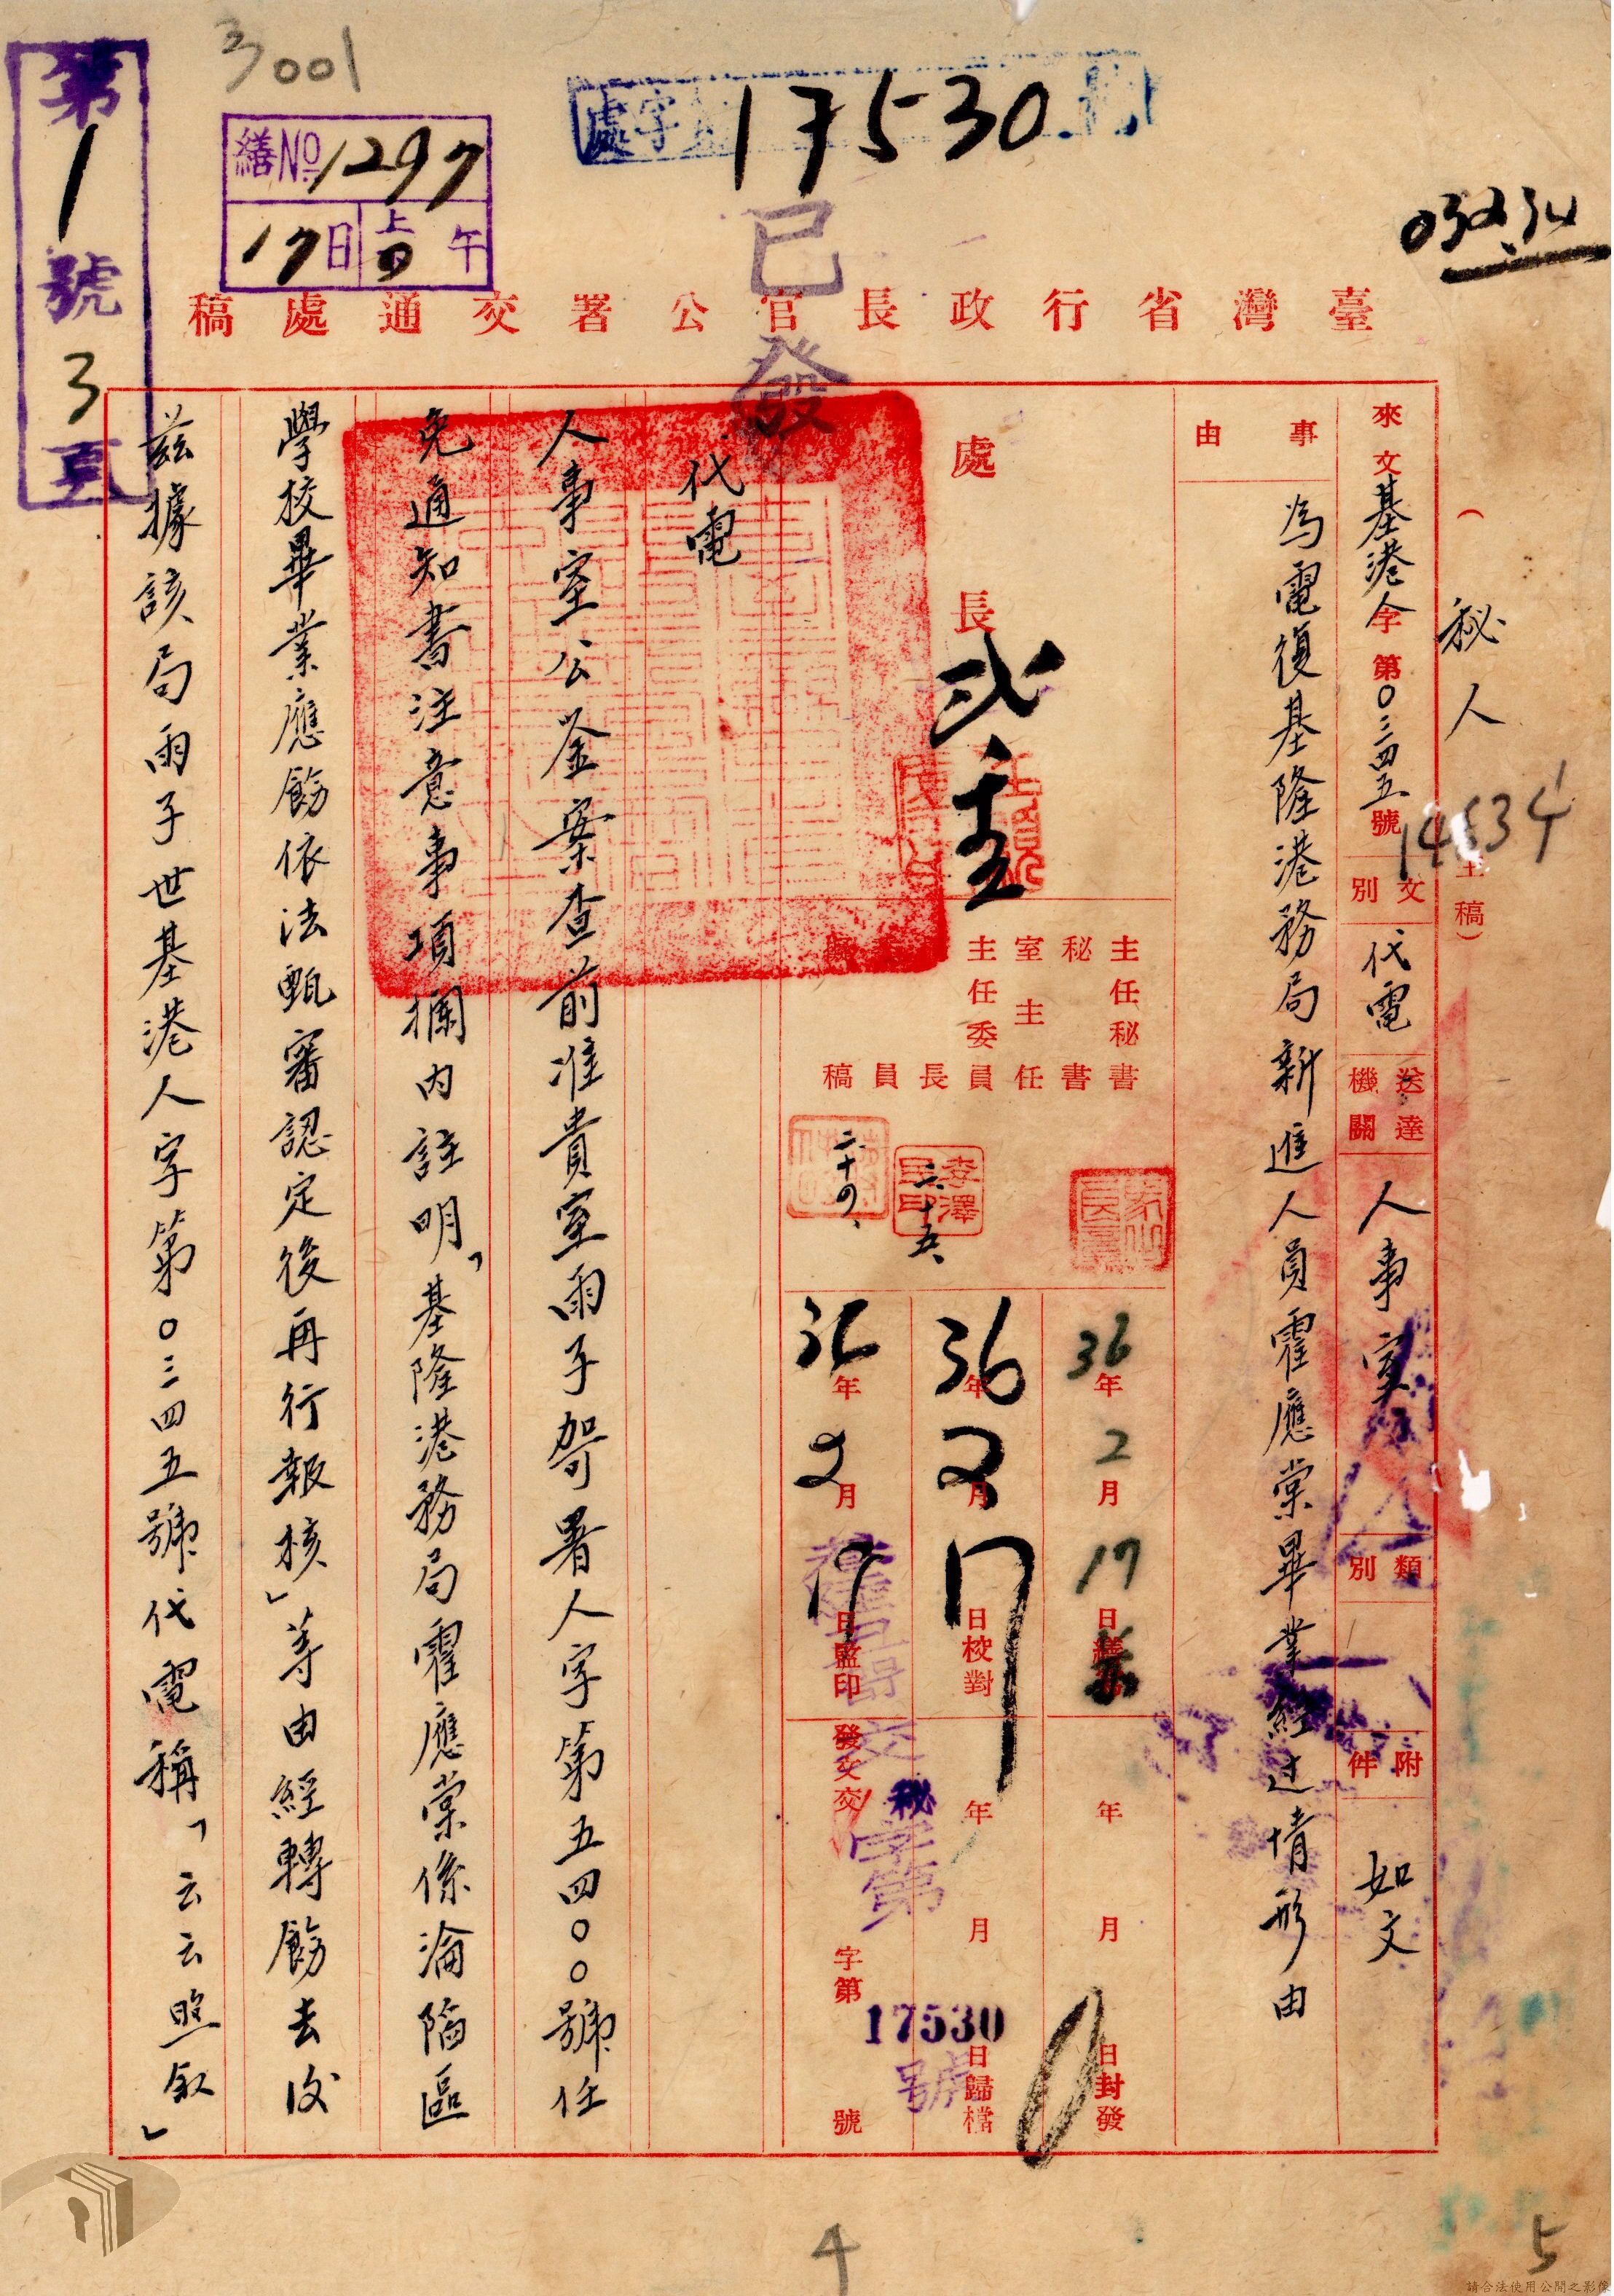 3001
第1號3頁
繕No 1297
17日上午
17530
已發
臺灣省行政長官公署交通處稿
秘人
14534
主稿）
來文 基港人字第〇三四五號
文別 代電
送達機關 人事室
類別
附件 如文
事由
為電復基隆港務局新進人員霍應棠畢業經過情形由
處長
主任秘書
秘書
室主任
主任委員
稿
36年2月17日繕
36年2月17日校對
36年2月17日監印
二、十五、
二、十四、
年月日封發
年月日歸檔
發文交 秘字第17530號
代電
人事室公鑒案查前准貴室丽子䓫署人字第五四〇〇號任
免通知書注意事項欄內註明「基隆港務局霍應棠係淪陷區
學校畢業應飭依法甄審認定後再行報核」等由經轉飭去後
茲據該局丽子世基港人字第〇三四五號代電稱「云云照叙」
4
5
請合法使用公開之影像